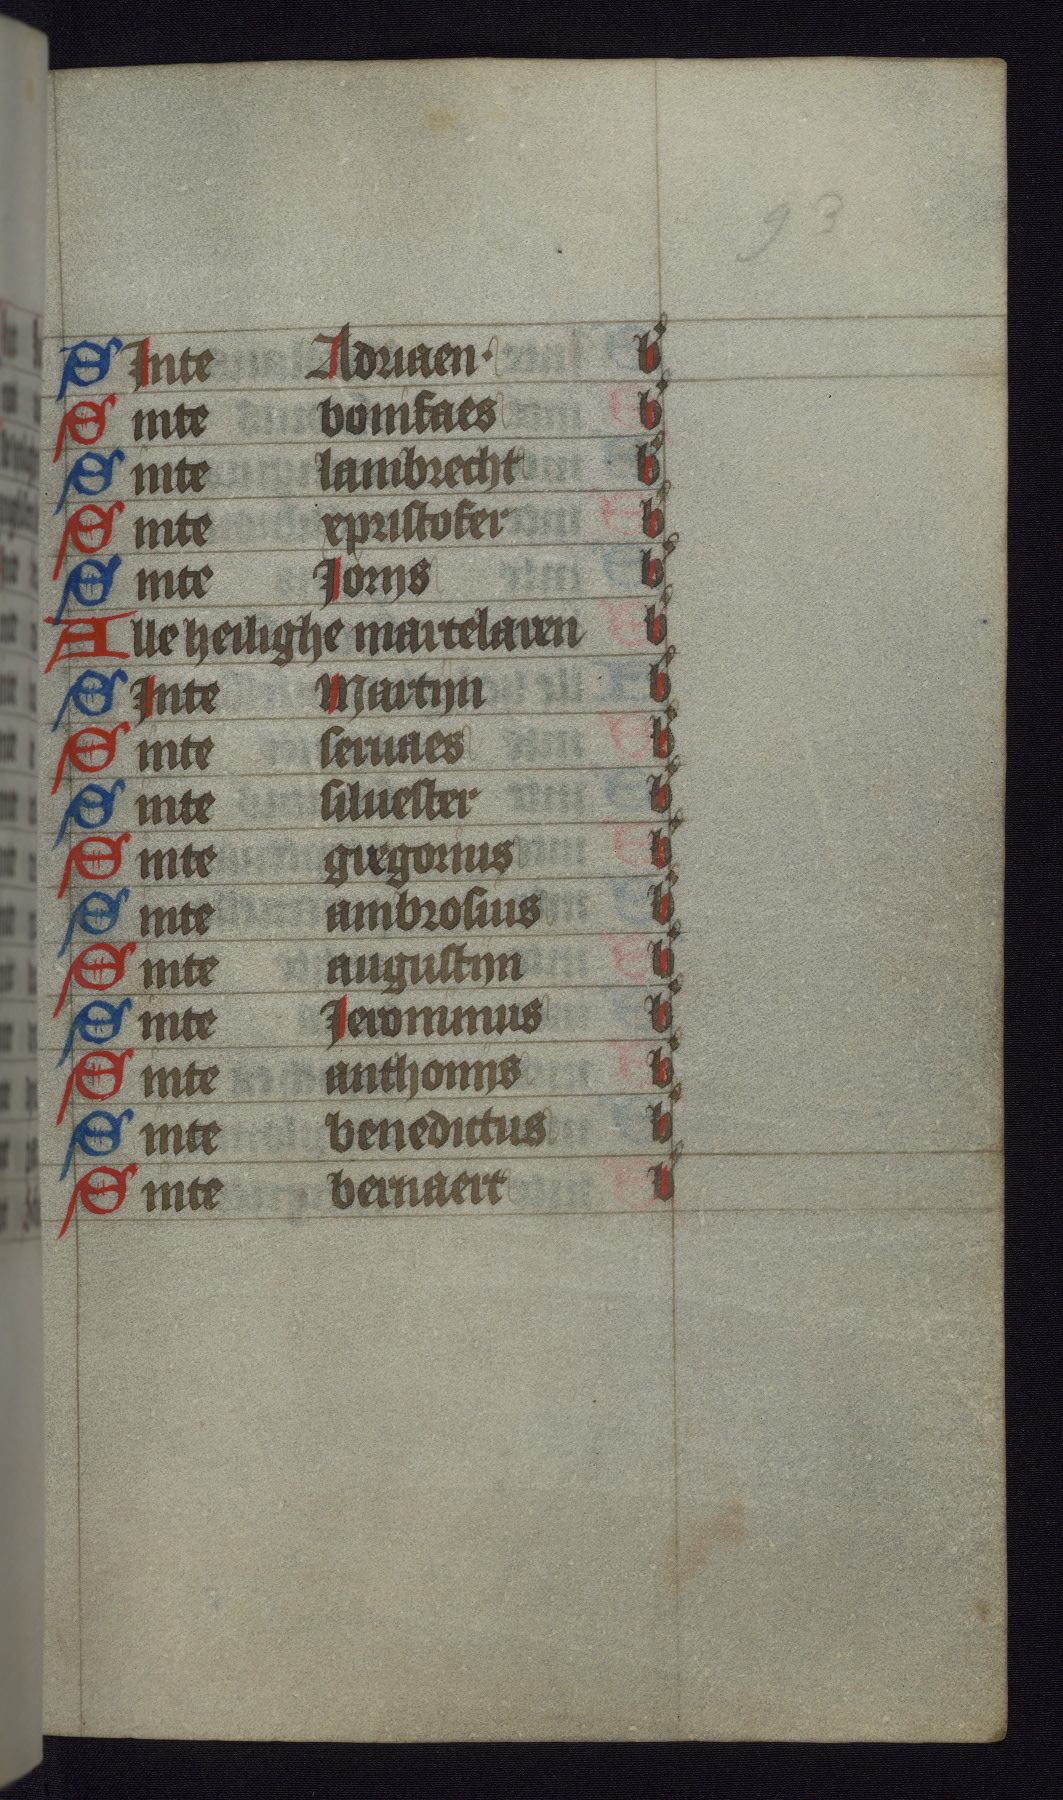 93
SInte Adriaen· b
Sinte bonifaes b
Sinte lambrecht b
Sinte xpristofer b
Sinte Jorijs b
Alle heilighe martelaren b
SInte Martijn b
Sinte seruaes b
Sinte siluester b
Sinte gregorius b
Sinte ambrosius b
Sinte augustijn b
Sinte Jeronimus b
Sinte anthonijs b
Sinte benedictus b
Sinte bernaert b